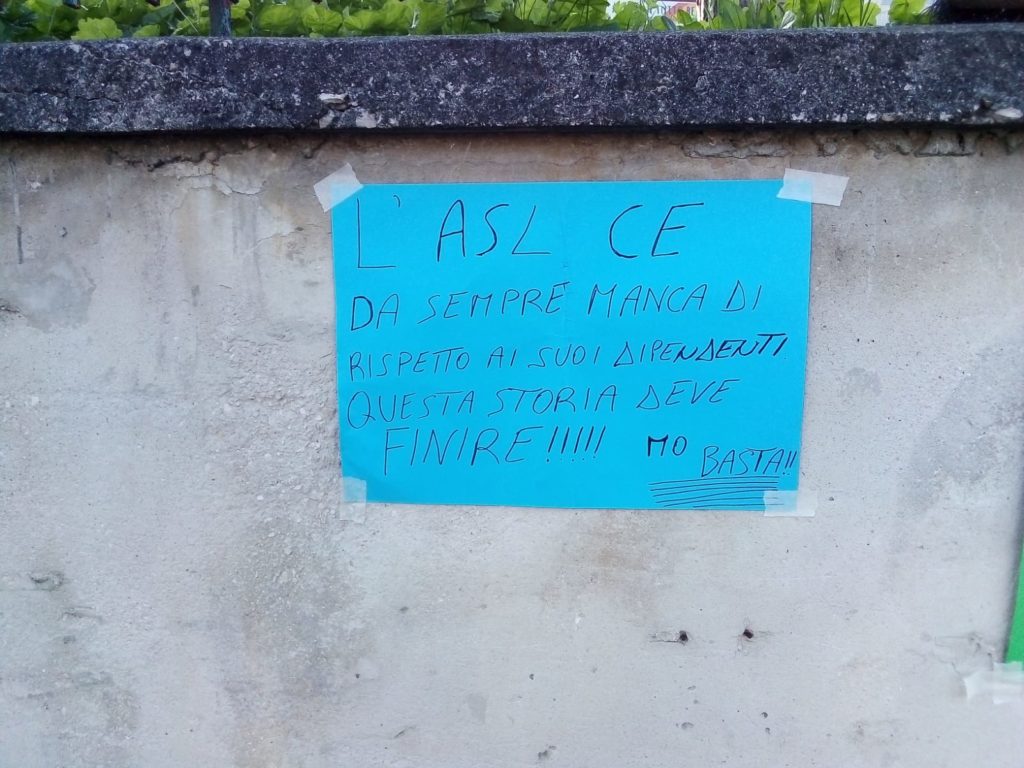 L' ASL CE
DA SEMPRE MANCA DI
RISPETTO AI SUOI DIPENDENTI.
QUESTA STORIA DEVE
FINIRE!!!!! MO BASTA!!